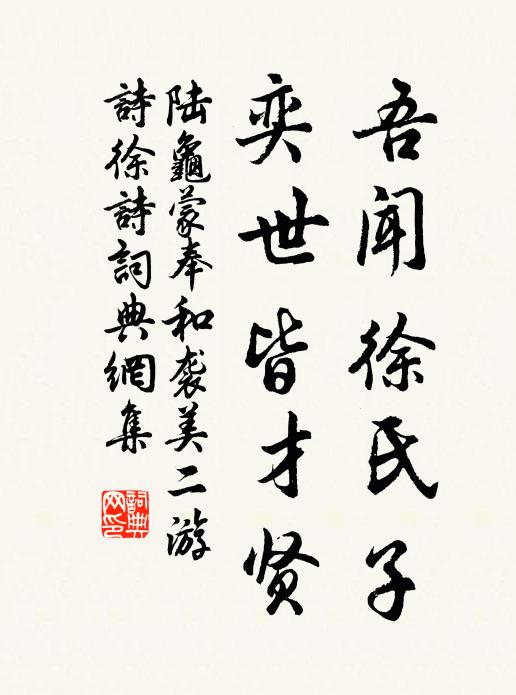 吾闻徐氏子
奕世皆才贤
陆龜蒙奉和袭美二游
詩徐詩詞典網集
詞典
网印